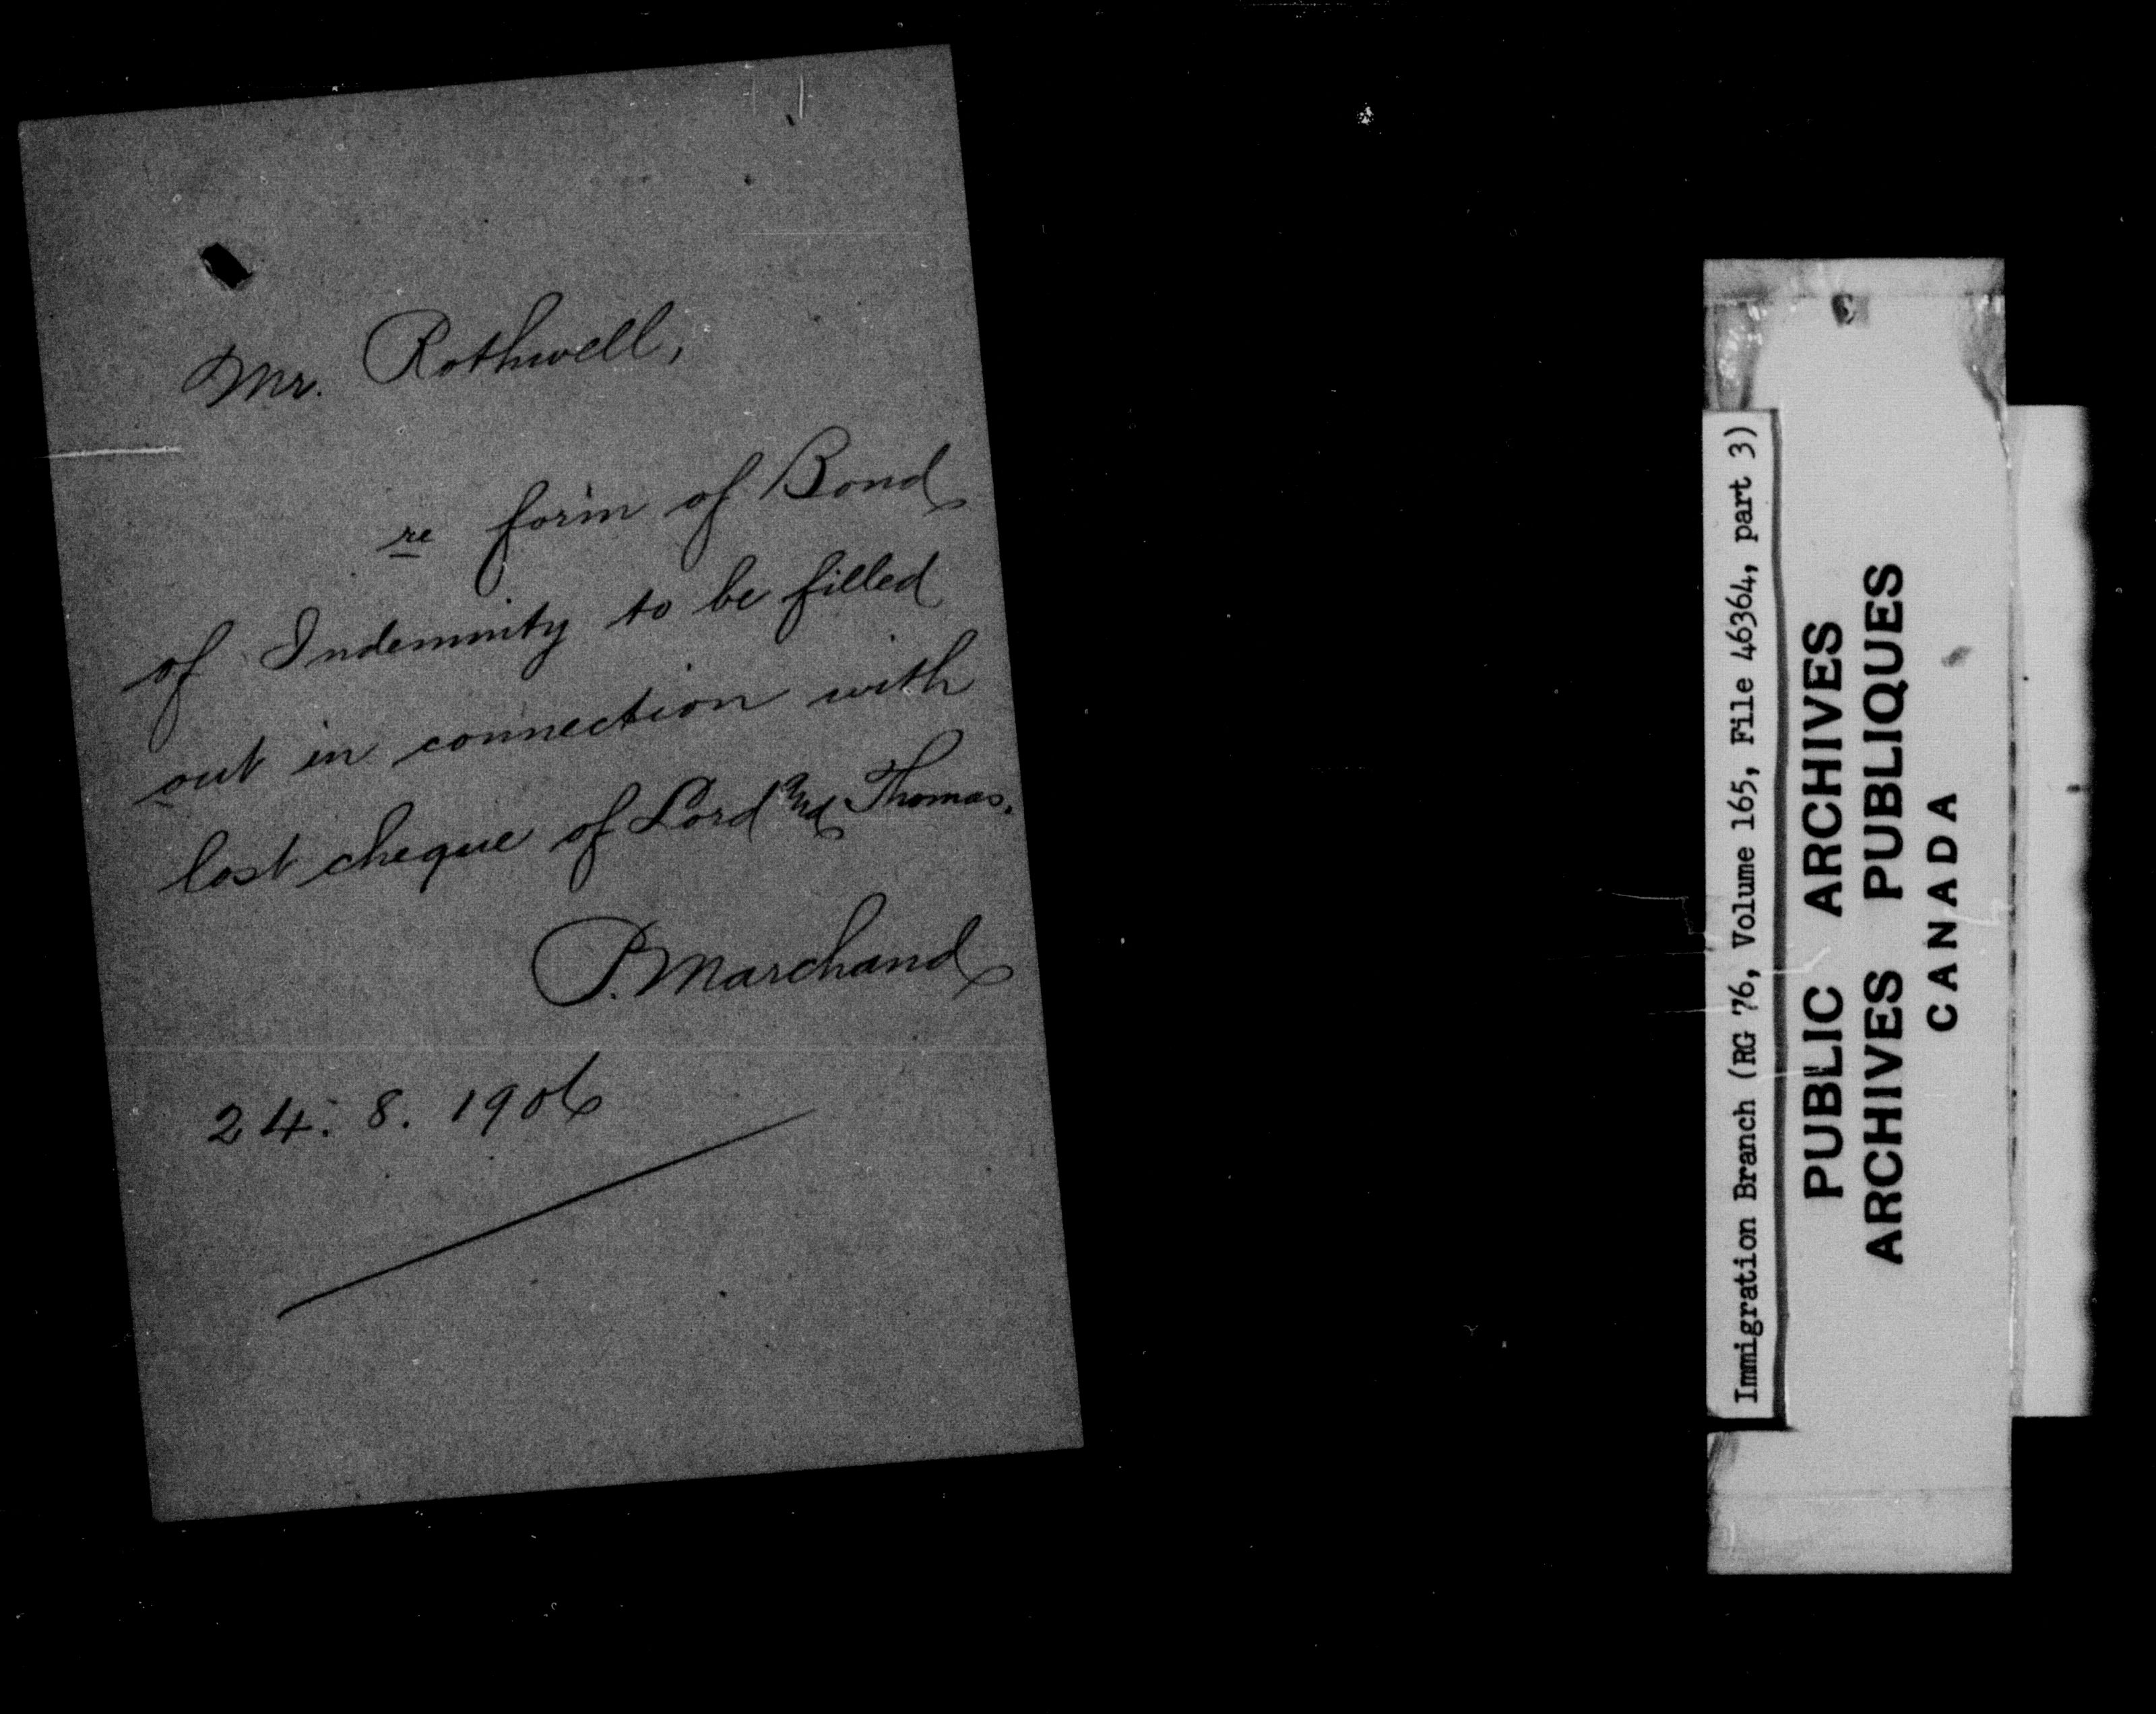 Mr. Rothwell,
re form of Bond
of Indemnity to be filled
out in connection with
lost cheque of Lord and Thomas.
P. Marchand
24. 8. 1906
Immigration Branch (RG 76, Volume 165, File 46364, part 3)
PUBLIC ARCHIVES
ARCHIVES PUBLIQUES
CANADA